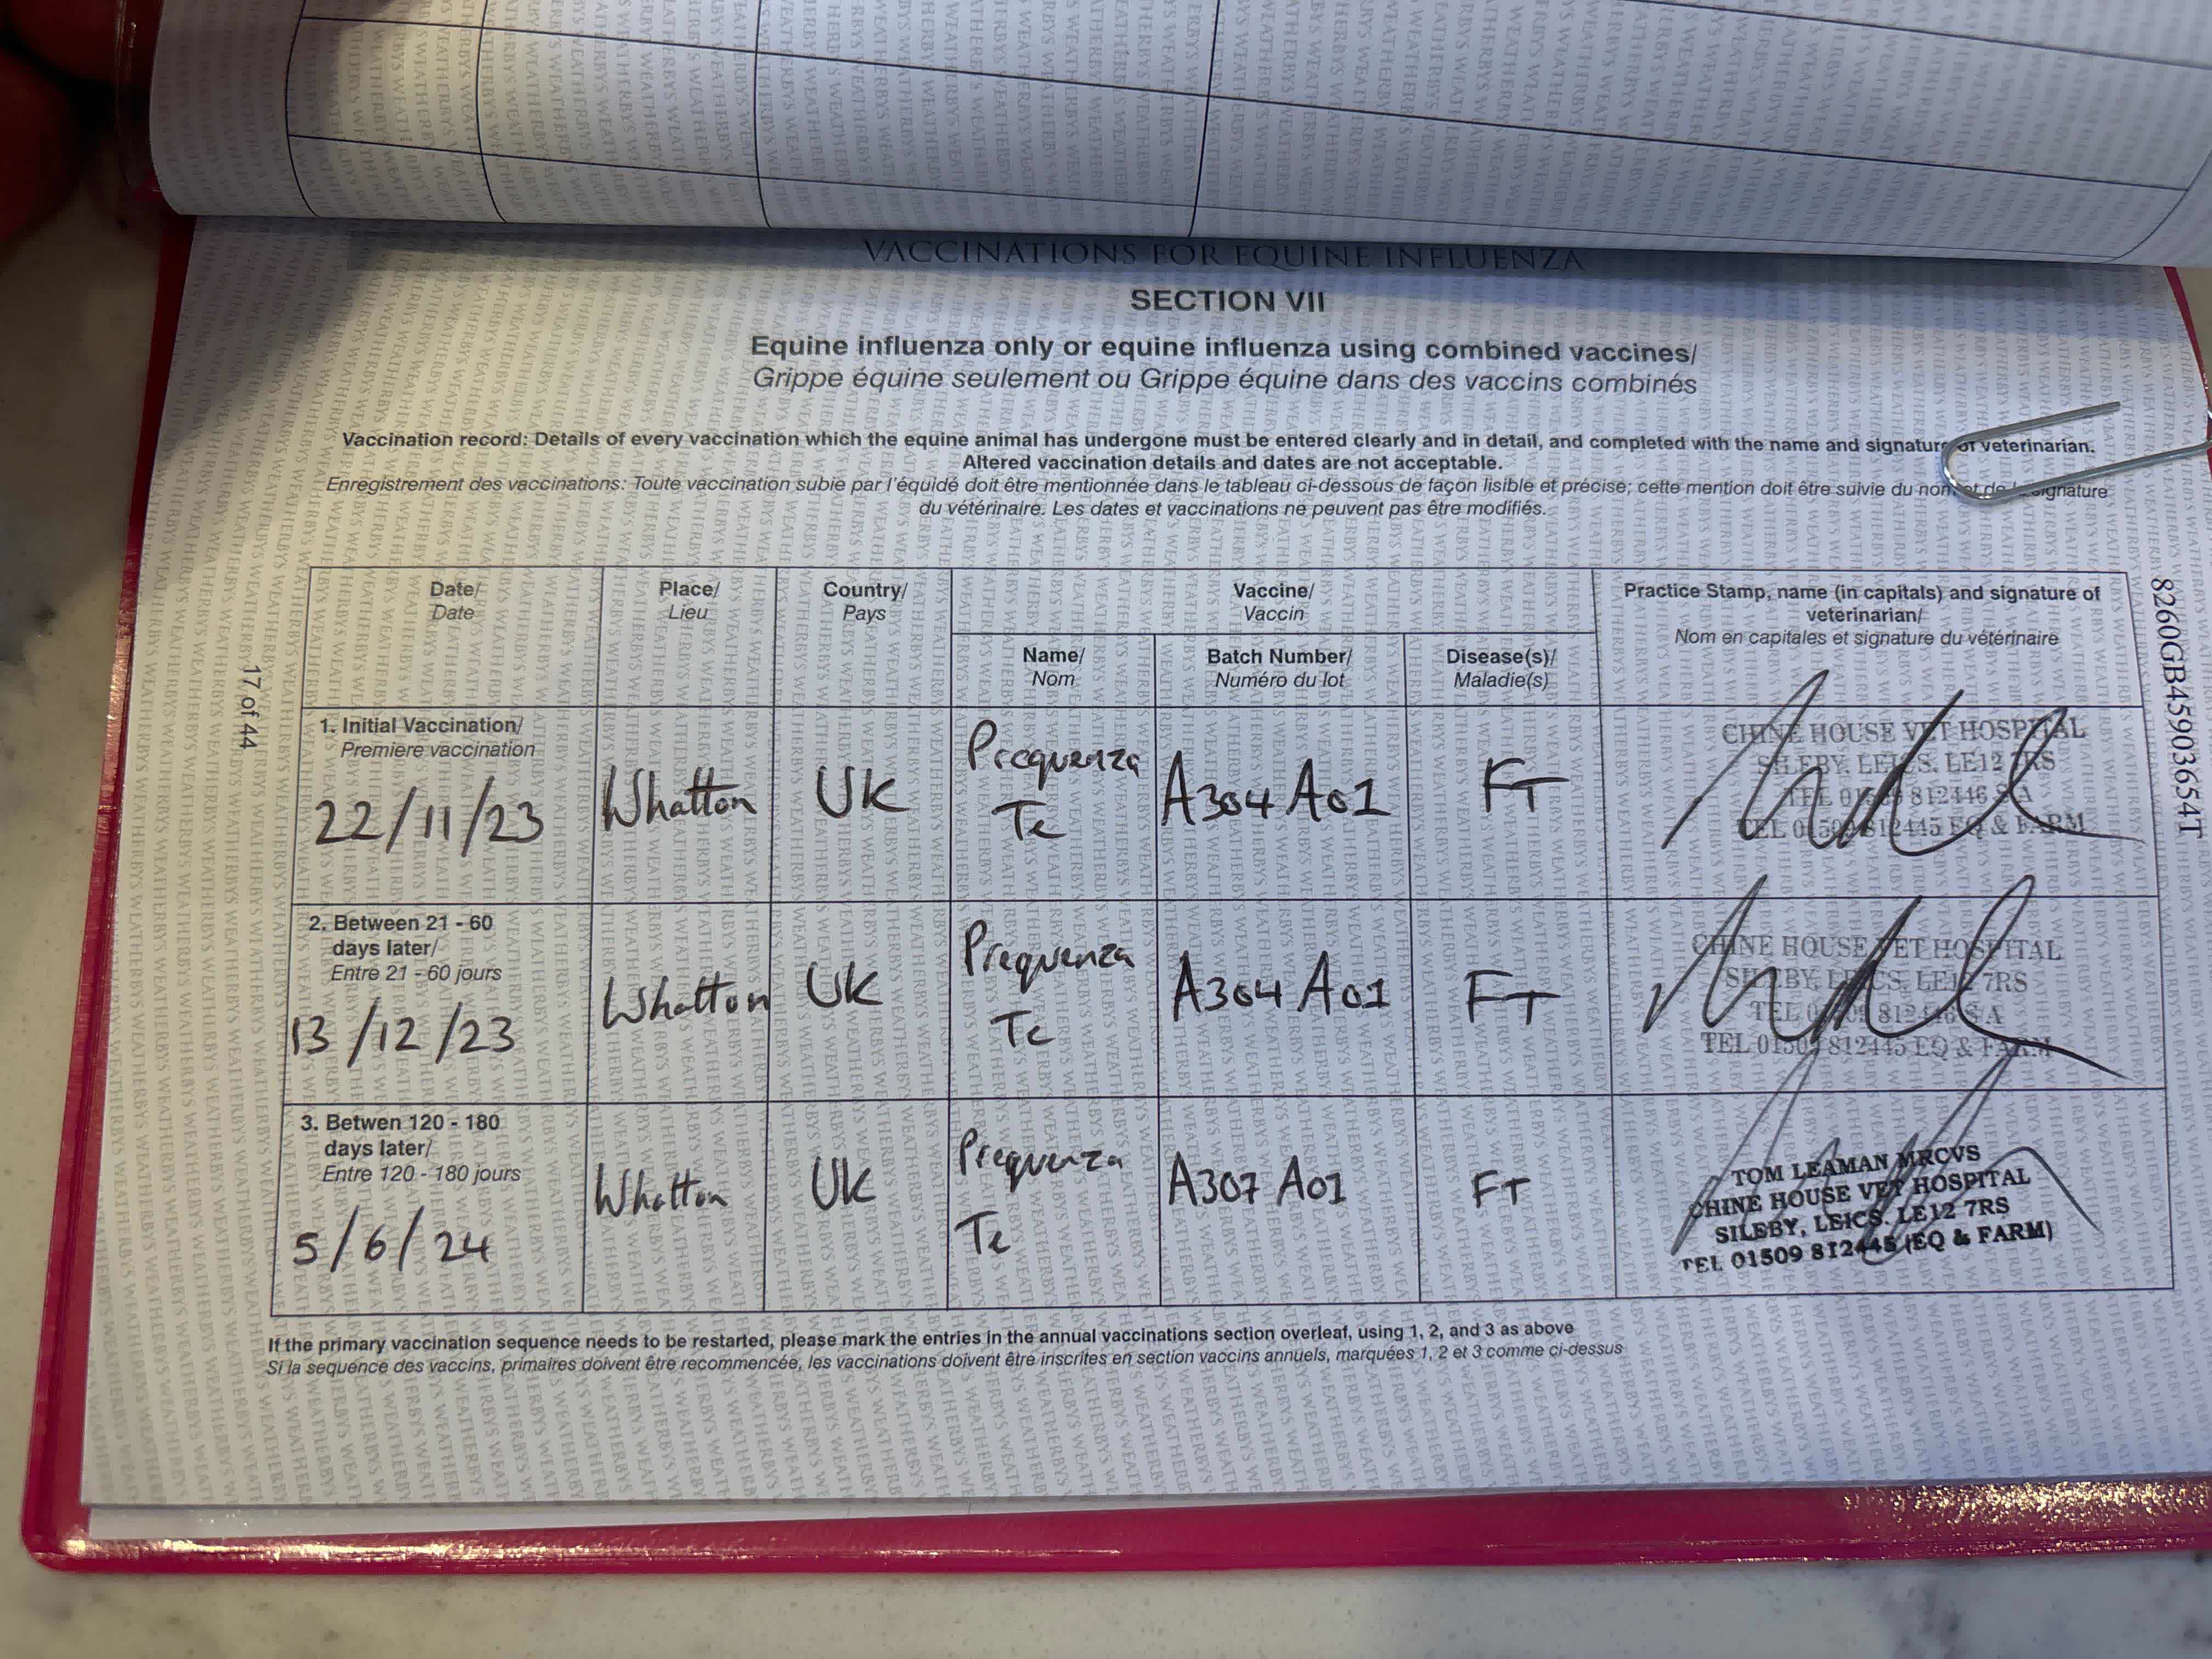 VACCINATIONS FOR EQUINE INFLUENZA
SECTION VII
Equine influenza only or equine influenza using combined vaccines/
Grippe équine seulement ou Grippe équine dans des vaccins combinés
Vaccination record: Details of every vaccination which the equine animal has undergone must be entered clearly and in detail, and completed with the name and signature of veterinarian.
Altered vaccination details and dates are not acceptable.
Enregistrement des vaccinations: Toute vaccination subie par l'équidé doit être mentionnée dans le tableau ci-dessous de façon lisible et précise; cette mention doit être suivie du nom et de la signature
du vétérinaire. Les dates et vaccinations ne peuvent pas être modifiés.
Date/
Date
Place/
Lieu
Country/
Pays
Vaccine/
Vaccin
Practice Stamp, name (in capitals) and signature of
veterinarian/
Nom en capitales et signature du vétérinaire
Name/
Nom
Batch Number/
Numéro du lot
Disease(s)/
Maladie(s)
1. Initial Vaccination/
Premiere vaccination
22/11/23
Whatton
UK
Prequenza
Te
A304 A01
FT
CHINE HOUSE VET HOSPITAL
SILEBY, LEICS. LE12 7RS
TEL 01509 812446 S/A
TEL 01509 812445 EQ & FARM
2. Between 21 - 60
days later/
Entre 21 - 60 jours
13/12/23
Whatton
UK
Prequenza
Te
A304 A01
FT
CHINE HOUSE VET HOSPITAL
SILEBY, LEICS. LE12 7RS
TEL 01509 812446 S/A
TEL 01509 812445 EQ & FARM
3. Betwen 120 - 180
days later/
Entre 120 - 180 jours
5/6/24
Whatton
UK
Prequenza
Te
A307 A01
FT
TOM LEAMAN MRCVS
CHINE HOUSE VET HOSPITAL
SILEBY, LEICS. LE12 7RS
TEL 01509 812445 (EQ & FARM)
If the primary vaccination sequence needs to be restarted, please mark the entries in the annual vaccinations section overleaf, using 1, 2, and 3 as above
Si la sequence des vaccins, primaires doivent être recommencée, les vaccinations doivent être inscrites en section vaccins annuels, marquées 1, 2 et 3 comme ci-dessus
17 of 44
8260GB45903654T
WEATHERBYS